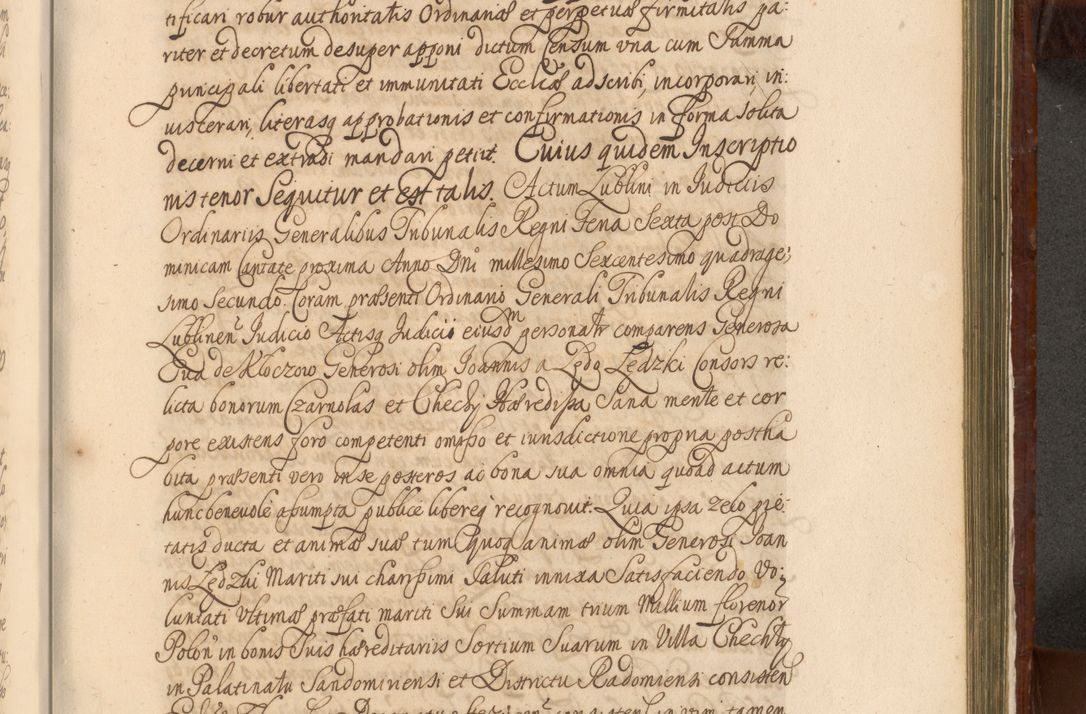 tificari robur authoritatis Ordinariæ et perpetuæ firmitatis pa:
riter et decretum desuper apponi dictum Censum vna cum Summa
principali libertati et immunitati Ecclcæ adscribi, incorporari, in:
uiscerari, literasq approbationis et confirmationis in forma solita
decerni et extradi mandari petiit. Cuius quidem Inscriptio
nis tenor Sequitur et Est talis. Actum Lublini in Iudiciis
Ordinariis Generalibus Tribunalis Regni Feria Sexta post Do
minicam Cantate proxima Anno Dni millesimo Sexcentesimo quadrage:
simo secundo. Coram præsenti Ordinario Generali Tribunalis Regni
Lublinen Iudicio Actisq Iudicii eiusdm personalr comparens Generosa
Eua de Kloczow Generosi olim Ioannis a Lędo Lędzki Consors re:
licta bonorum Czarnolas et Chechy Hæredissa Sana mente et cor
pore existens foro competenti omisso et iurisdictione propria postha
bita præsenti vero in se posteros ac bona sua omnia quoad actum
hunc beneuole assumpta publice libereq recognouit. Quia ipsa zelo pie:
tatis ducta et animæ suæ tum quoq animæ olim Generosi Ioan
nis Lędzki Mariti sui charissimi Saluti innixa Satisfaciendo Vo:
luntati Vltimæ præfati mariti Sui Summam trium Millium florenor
Polon in bonis Suis hæreditariis Sortium Suarum in Villa Chechly
in Palatinatu Sandomiriensi et Districtu Radomiensi consisten